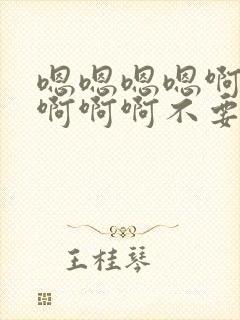 嗯嗯嗯嗯啊
啊啊啊不要
王桂琴